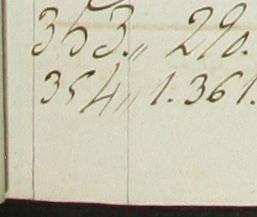 353.„ 290.
354„ 1.361.